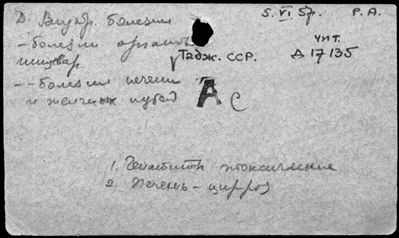 Д. Внутр. болезни
5. VI 57. Р. А.
- болезни органов
пищевар
Тадж. ССР.
чит.
Д 17135
-- болезни печени
и желчных путей
А с
1. Гепатиты токсические
2. Печень - цирроз